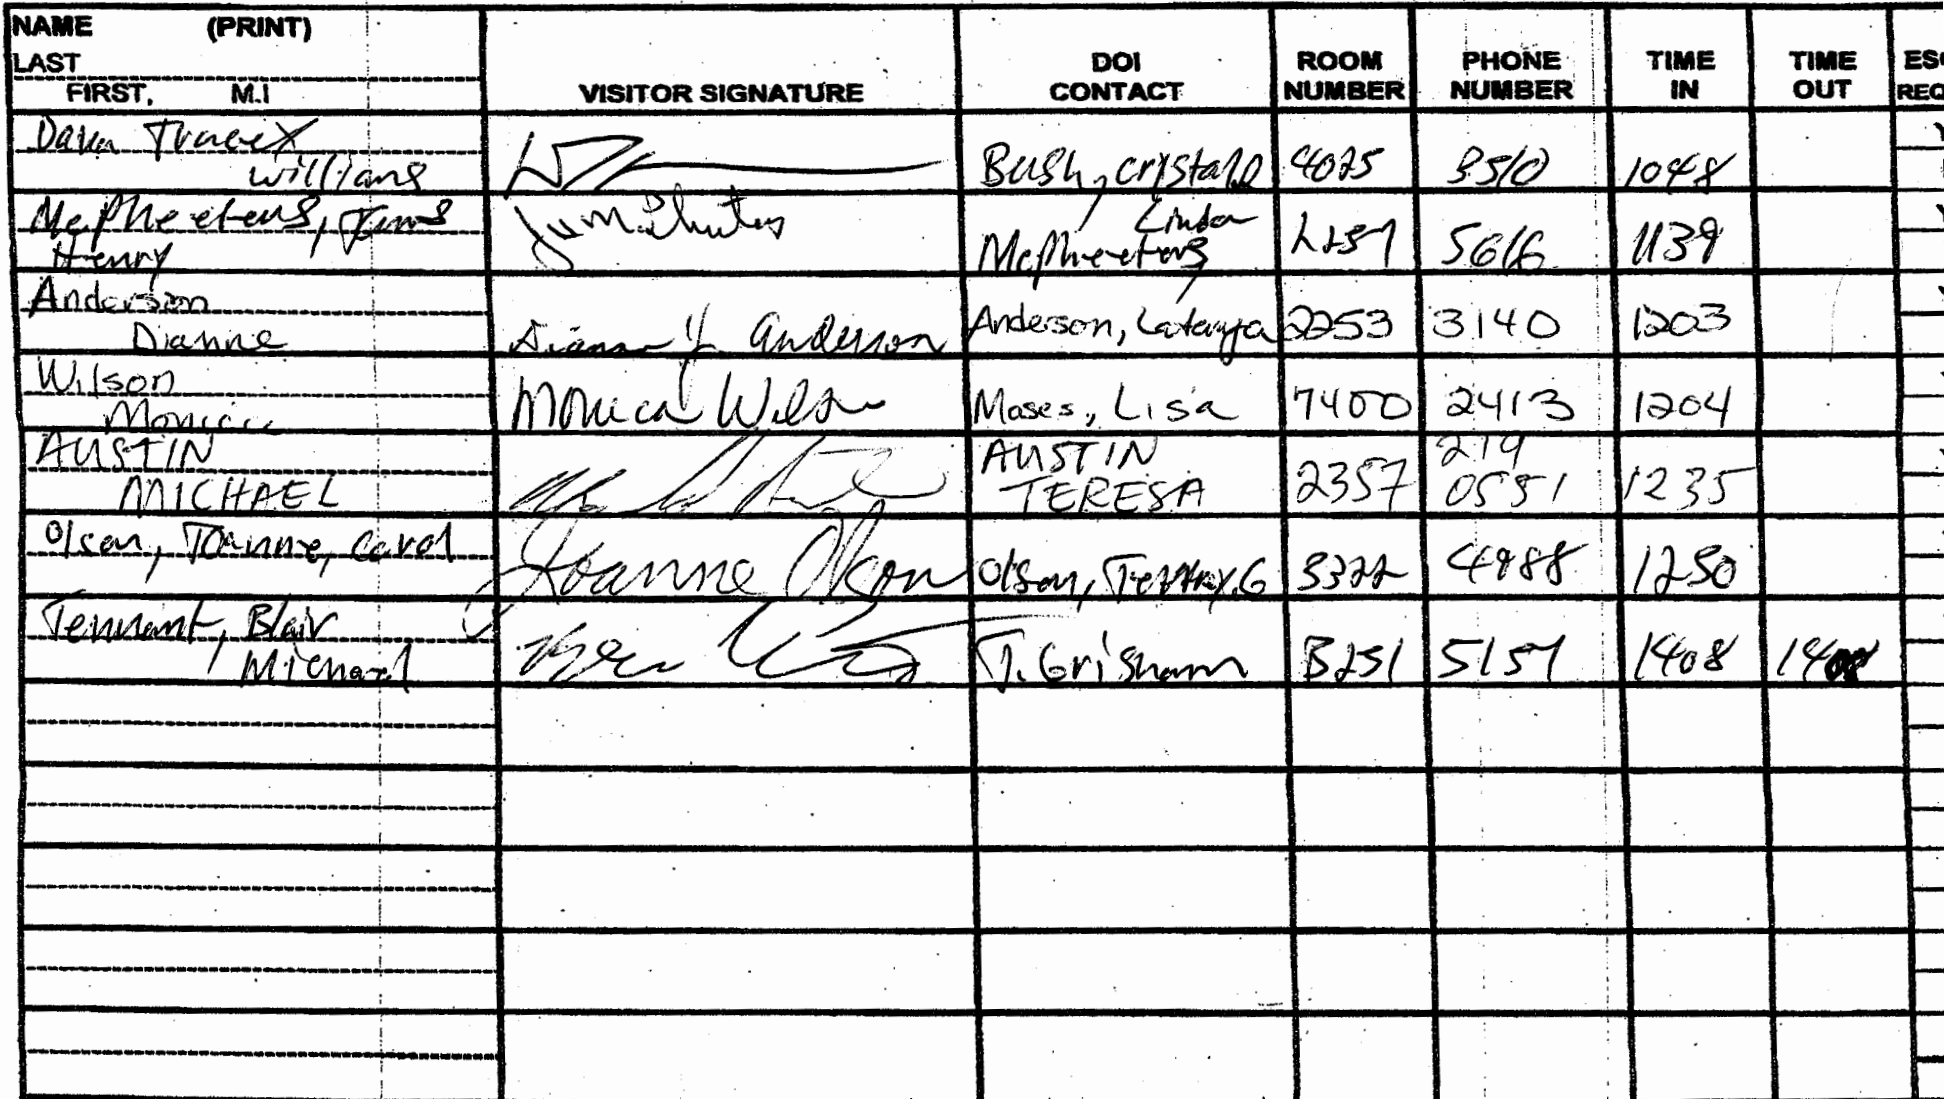 NAME (PRINT)
LAST
FIRST, M.I
VISITOR SIGNATURE
DOI CONTACT
ROOM NUMBER
PHONE NUMBER
TIME IN
TIME OUT
Williams
Bush, Crystal D 4025 3510 1048
McPheeters, James
Henry
Linda
McPheeters 5616 1139
Anderson
Dianne
Anderson
Anderson, Latanya 2253 3140 1203
Wilson
Monica
Monica Wilson
Moses, Lisa 7400 2413 1204
AUSTIN
MICHAEL
AUSTIN
TERESA
2357
219
0551
1235
Olsen, Joanne, Carol
Joanne Olson
Olson, 3322 4988 1250
Tennant, Blair
Michael
T. Grisham B251 5157 1408